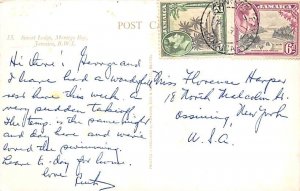 15. Sunset Lodge, Montego Bay,
Jamaica, B.W.I.
POST C
Hi there! George and
I have had a wonderful
rest here this week. A
very sudden takeoff.
The temp. is the same night
and day here and we've
loved the swimming.
Leave to-day for home.
love
Miss Florence Harper
18 North Malcolm St.
Ossining, New York
U.S.A.
6D